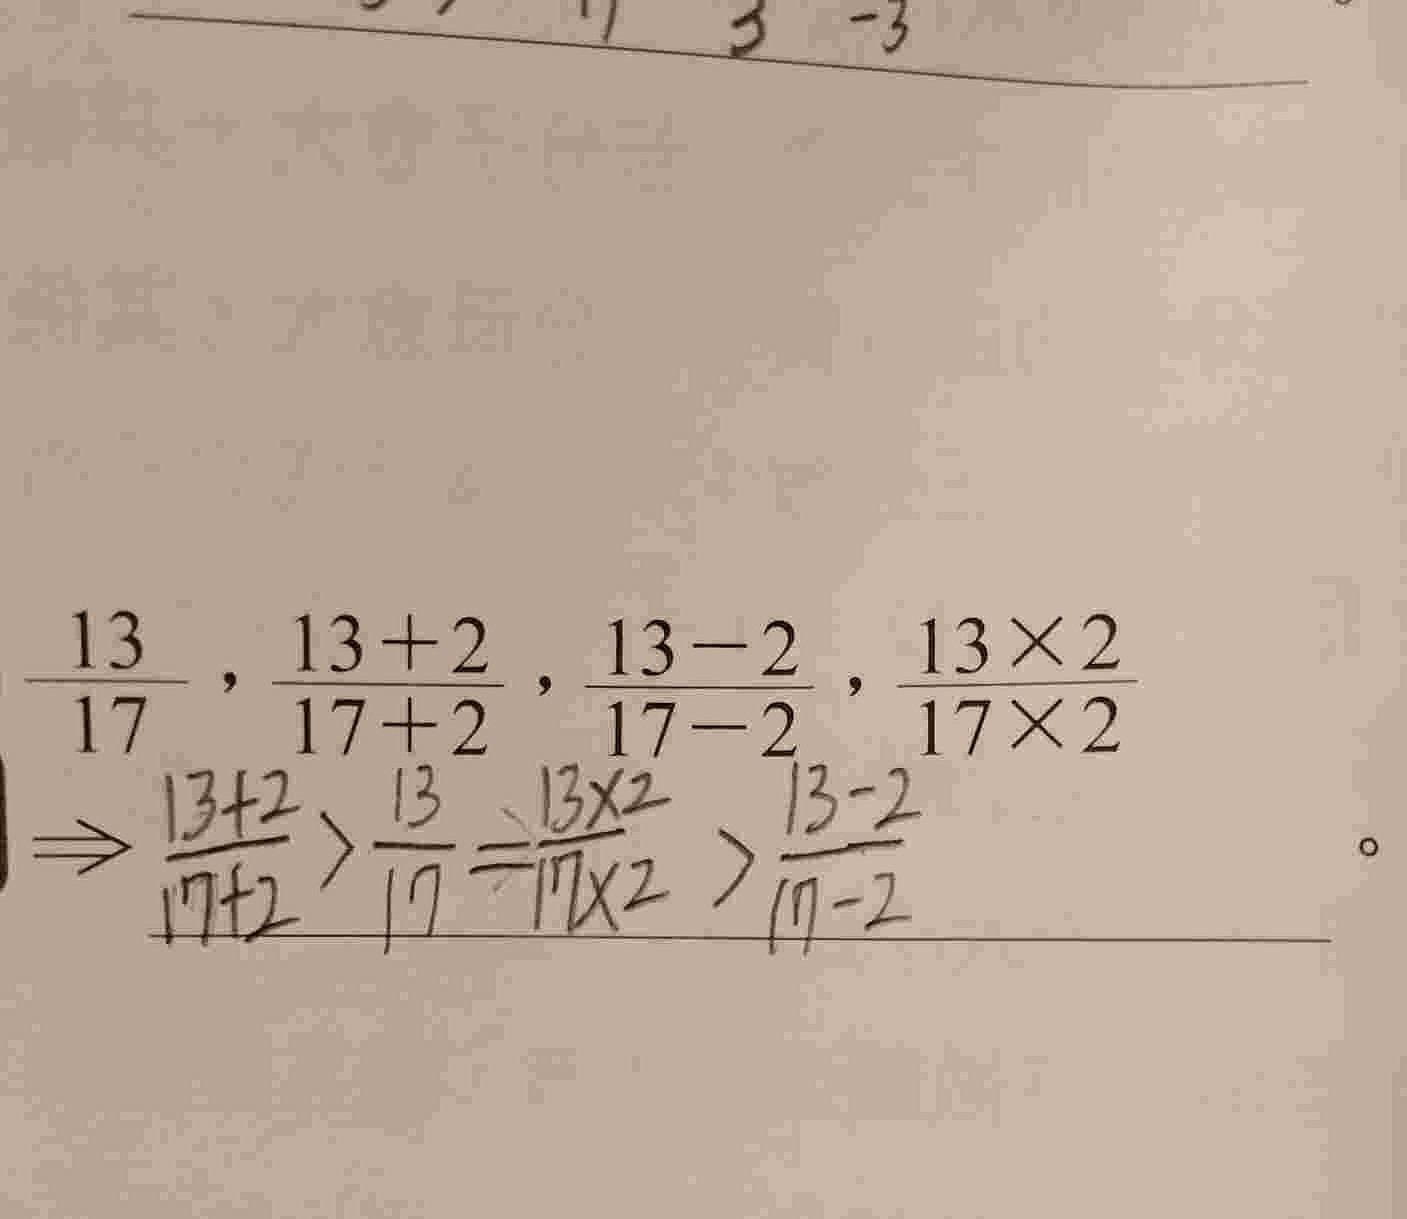 3 -3
13/17 , 13+2/17+2 , 13-2/17-2 , 13×2/17×2
⇒ 13+2/17+2 > 13/17 = 13×2/17×2 > 13-2/17-2 。